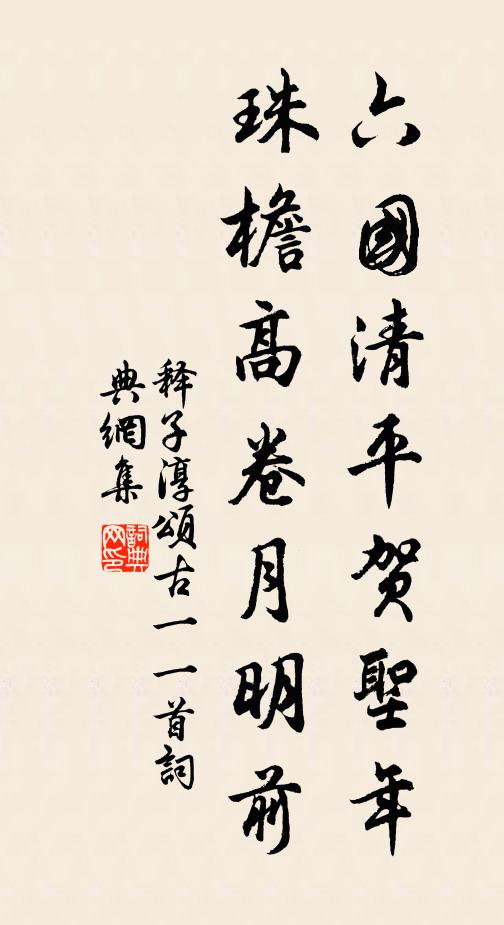 六國清平贺聖年
珠檐高卷月明前
释子淳頌古一一首詞
典網集
詞典
网印